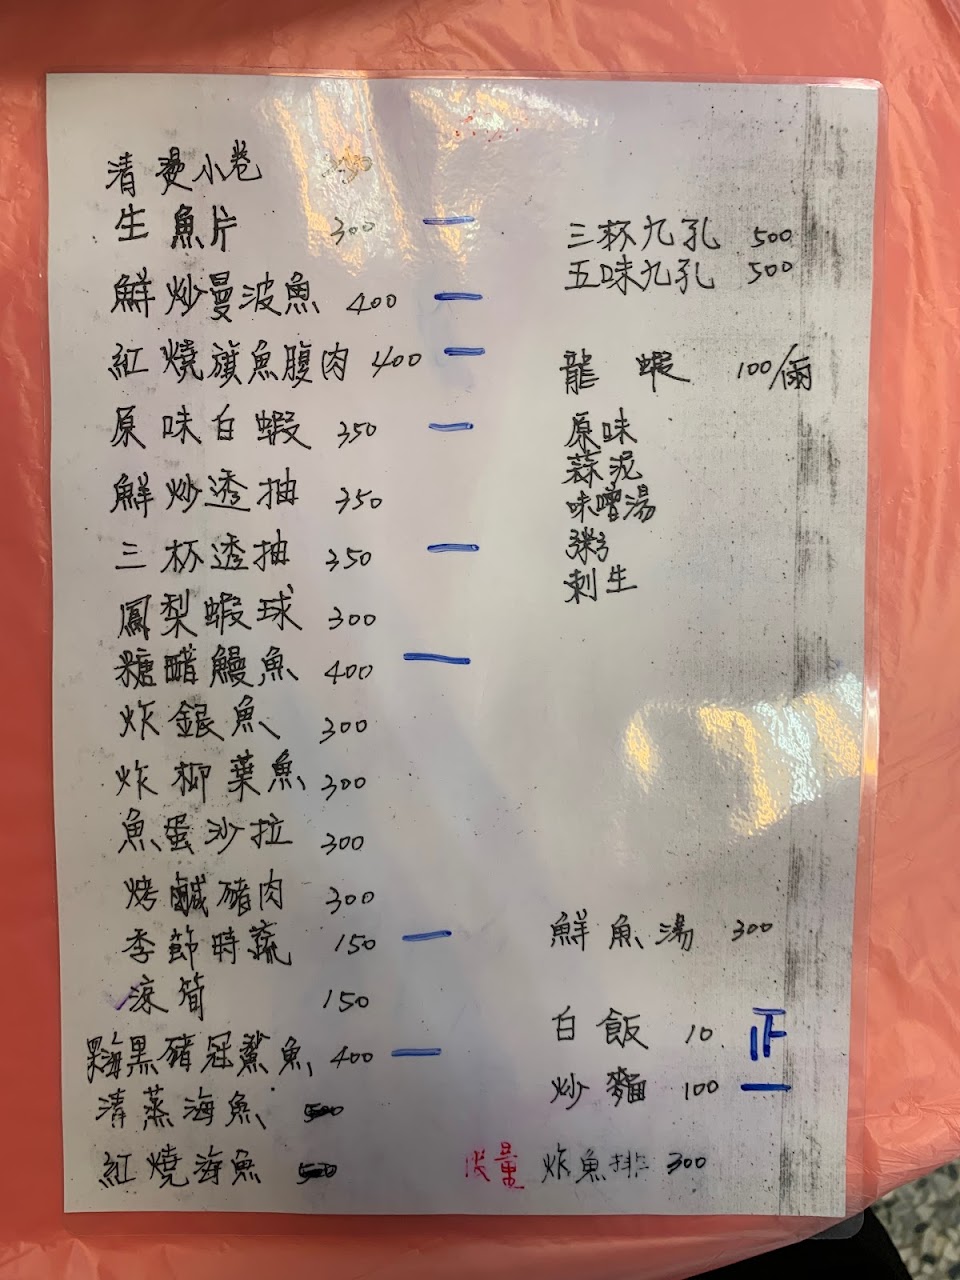 清燙小卷
生魚片 300 一
鮮炒曼波魚 400 一
紅燒旗魚腹肉 400 一
原味白蝦 350 一
鮮炒透抽 350
三杯透抽 350 一
鳳梨蝦球 300
糖醋鰻魚 400 一
炸銀魚 300
炸柳葉魚 300
魚蛋沙拉 300
烤鹹豬肉 300
季節時蔬 150 一
涼筍 150
黑豬冠鯊魚 400 一
清蒸海魚
紅燒海魚
三杯九孔 500
五味九孔 500
龍蝦 100/兩
原味
蒜泥
味噌湯
粥
刺生
鮮魚湯 300
白飯 10 正
炒麵 100 一
限量 炸魚排 300